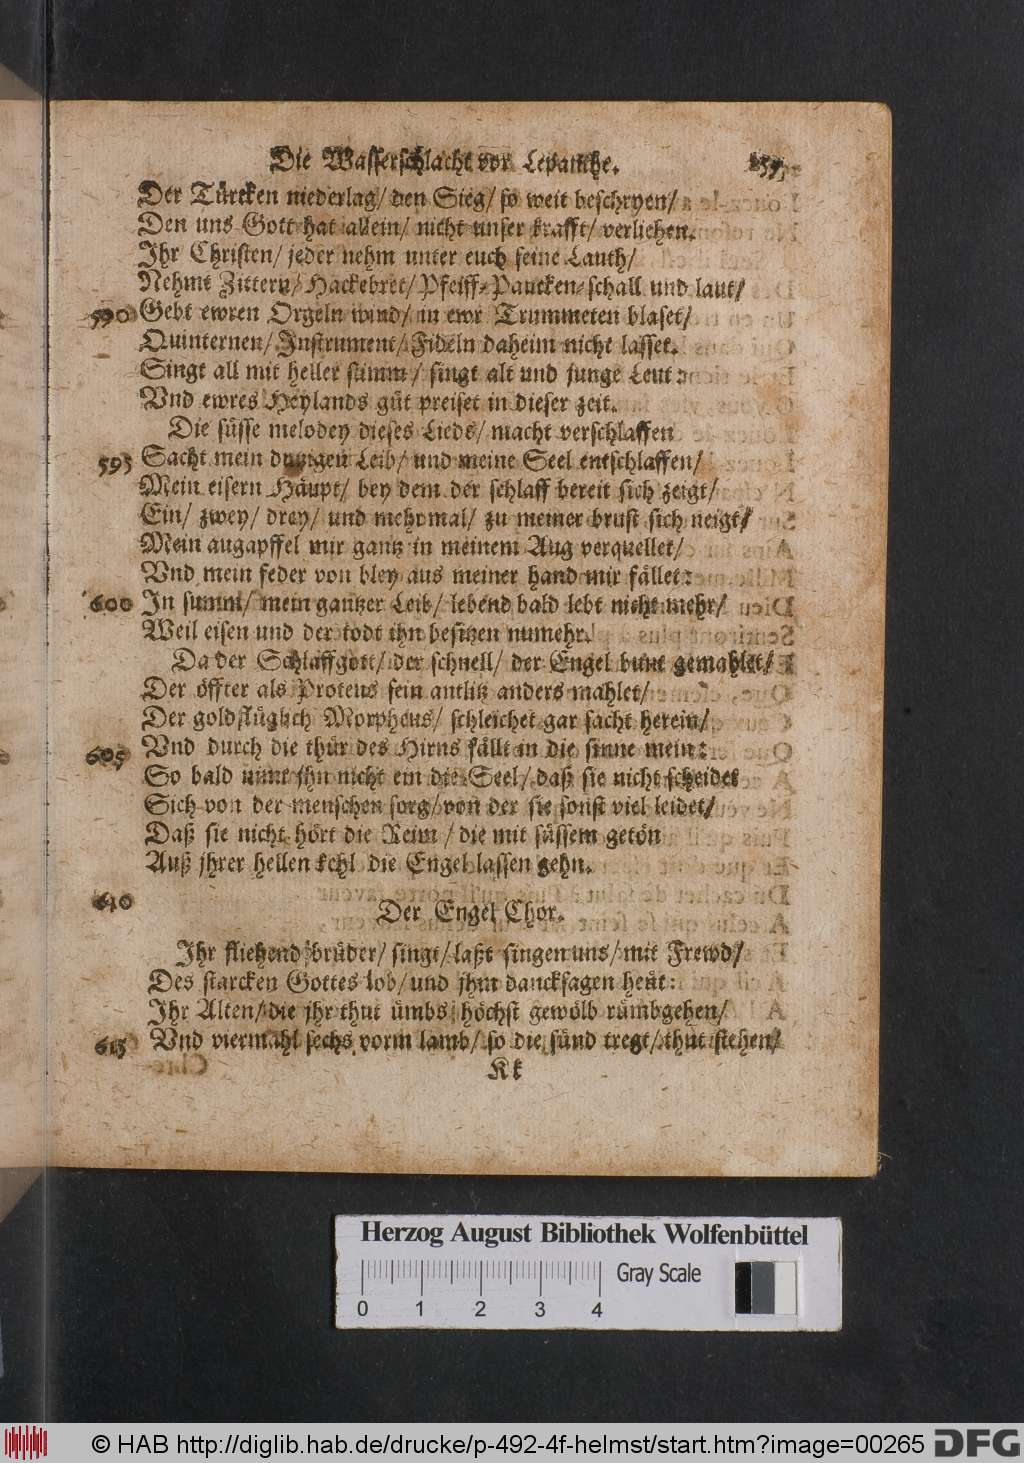 Die Wasserschlacht vor Lepanthe. 257
Der Türcken niederlag/ den Sieg/ so weit beschryen/
Den uns Gott hat allein/ nicht unser krafft/ verliehen.
Ihr Christen/ jeder nehm unter euch seine Lauth/
Nehmt Zittern/ Hackebret/ Pfeiff-Paucken-schall und laut/
590 Gebt ewren Orgeln wind/ in ewr Trummeten blaset/
Quinternen/ Instrument/ Fideln daheim nicht lasset.
Singt all mit heller stimm/ singt alt und junge Leut:
Vnd ewres Heylands güt preiset in dieser zeit.
Die süsse melodey dieses Lieds/ macht verschlaffen
595 Sacht mein leib/ und meine Seel entschlaffen/
Mein eisern Häupt/ bey dem der schlaff bereit sich zeigt/
Ein/ zwey/ drey/ und mehrmal/ zu meiner brust sich neigt/
Mein augapffel mir gantz in meinem Aug verquellet/
Vnd mein feder von bley aus meiner hand mir fället:
600 In summ/ mein gantzer Leib/ lebend bald lebt nicht mehr/
Weil eisen und der todt ihn besitzen numehr.
Da der Schlaffgott/ der schnell/ der Engel bunt gemahlet/
Der öffter als Proteus sein antlitz anders mahlet/
Der goldflüglich Morpheus/ schleichet gar sacht herein/
605 Vnd durch die thür des Hirns fällt in die sinne mein:
So bald nimt ihn nicht ein die Seel/ daß sie nicht scheidet
Sich von der menschen sorg/ von der sie sonst viel leidet/
Daß sie nicht hört die Reim/ die mit süssem getön
Auß jhrer hellen kehl die Engel lassen gehn.
610 Der Engel Chor.
Ihr fliehend brüder/ singt/ laßt singen uns/ mit Frewd/
Des starcken Gottes lob/ und jhm dancksagen heut:
Ihr Alten/ die jhr thut ümbs höchst gewölb rümbgehen/
615 Vnd viermahl sechs vorm lamb/ so die sünd tregt/ thut stehen/
Kk
Herzog August Bibliothek Wolfenbüttel
0 1 2 3 4 Gray Scale
© HAB http://diglib.hab.de/drucke/p-492-4f-helmst/start.htm?image=00265 DFG